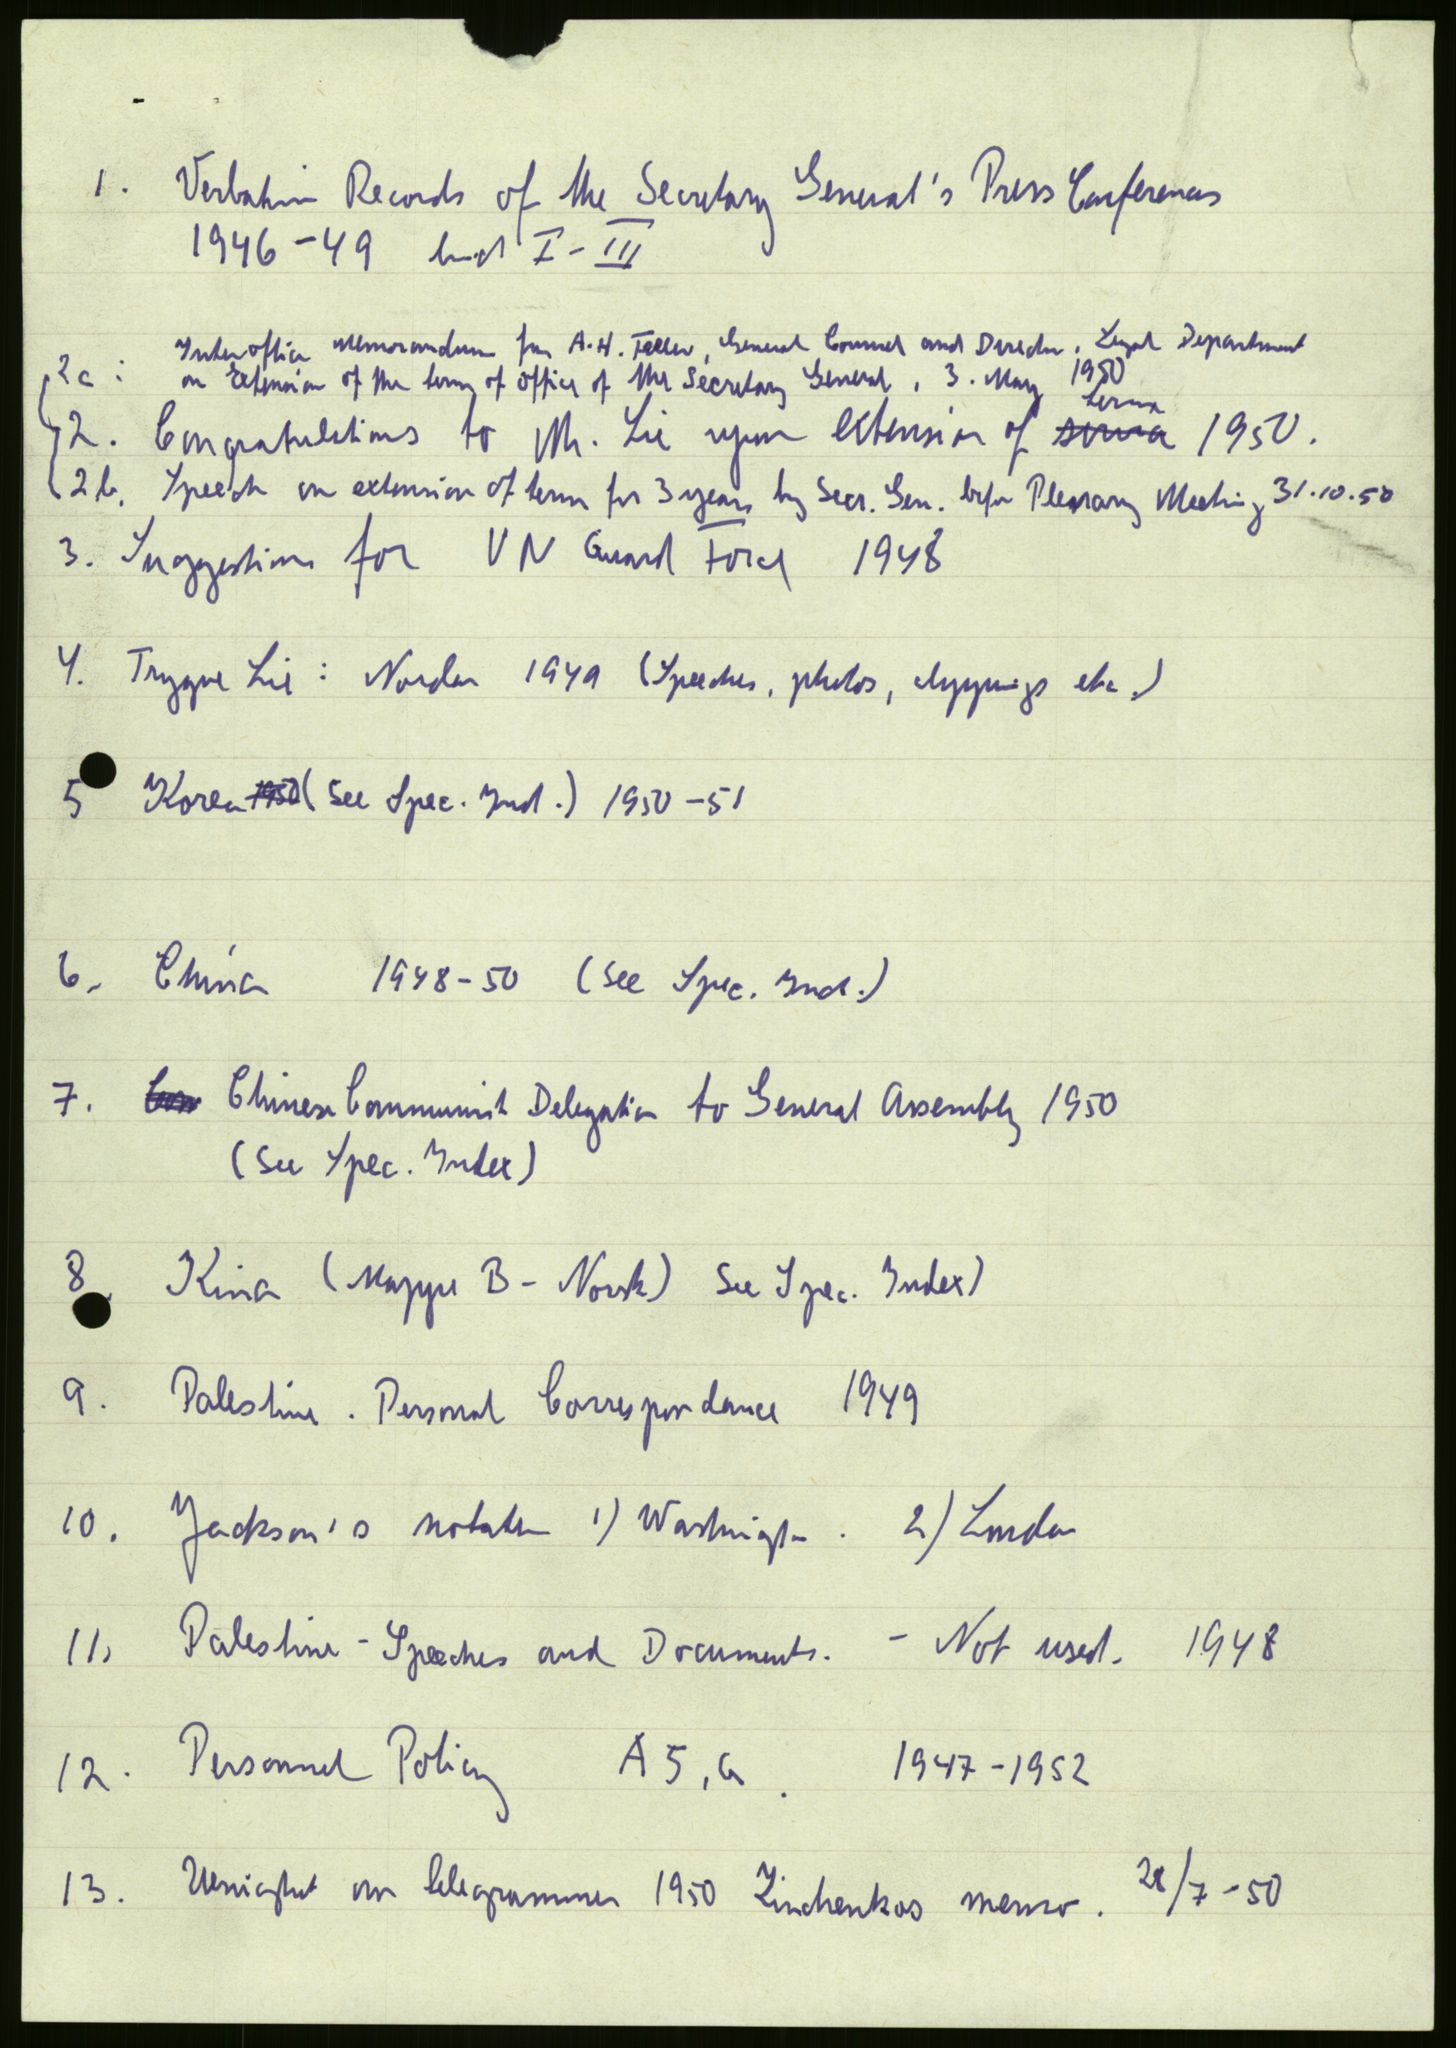 1. Verbatim Records of the Secretary General's Press Conferences
1946-49 bind I-III
2a: Inter office memorandum from A.H. Feller, General Counsel and Director, Legal Department
on Extension of the term of office of the Secretary General, 3. May 1950
2. Congratulations to Mr. Lie upon extension of term 1950.
2b. Speech on extension of term for 3 years by Secr. Gen. before Plenary Meeting 31.10.50
3. Suggestions for UN Guard Force 1948
4. Trygve Lie: Norden 1949 (Speeches, photos, clippings etc.)
5 Korea 1950 (See Spec. Ind.) 1950-51
6. China 1948-50 (See Spec. Ind.)
7. Chinese Communist Delegation to General Assembly 1950
(See Spec. Index)
8. Kina (Mappe B - Norsk) See Spec. Index)
9. Palestine. Personal Correspondance 1949
10. Jackson's notater 1) Washington. 2) London
11. Palestine - Speeches and Documents. - Not used. 1948
12. Personnel Policy A 5, a. 1947-1952
13. Uenighet om telegrammer 1950 Zinchenkos memo. 28/7-50